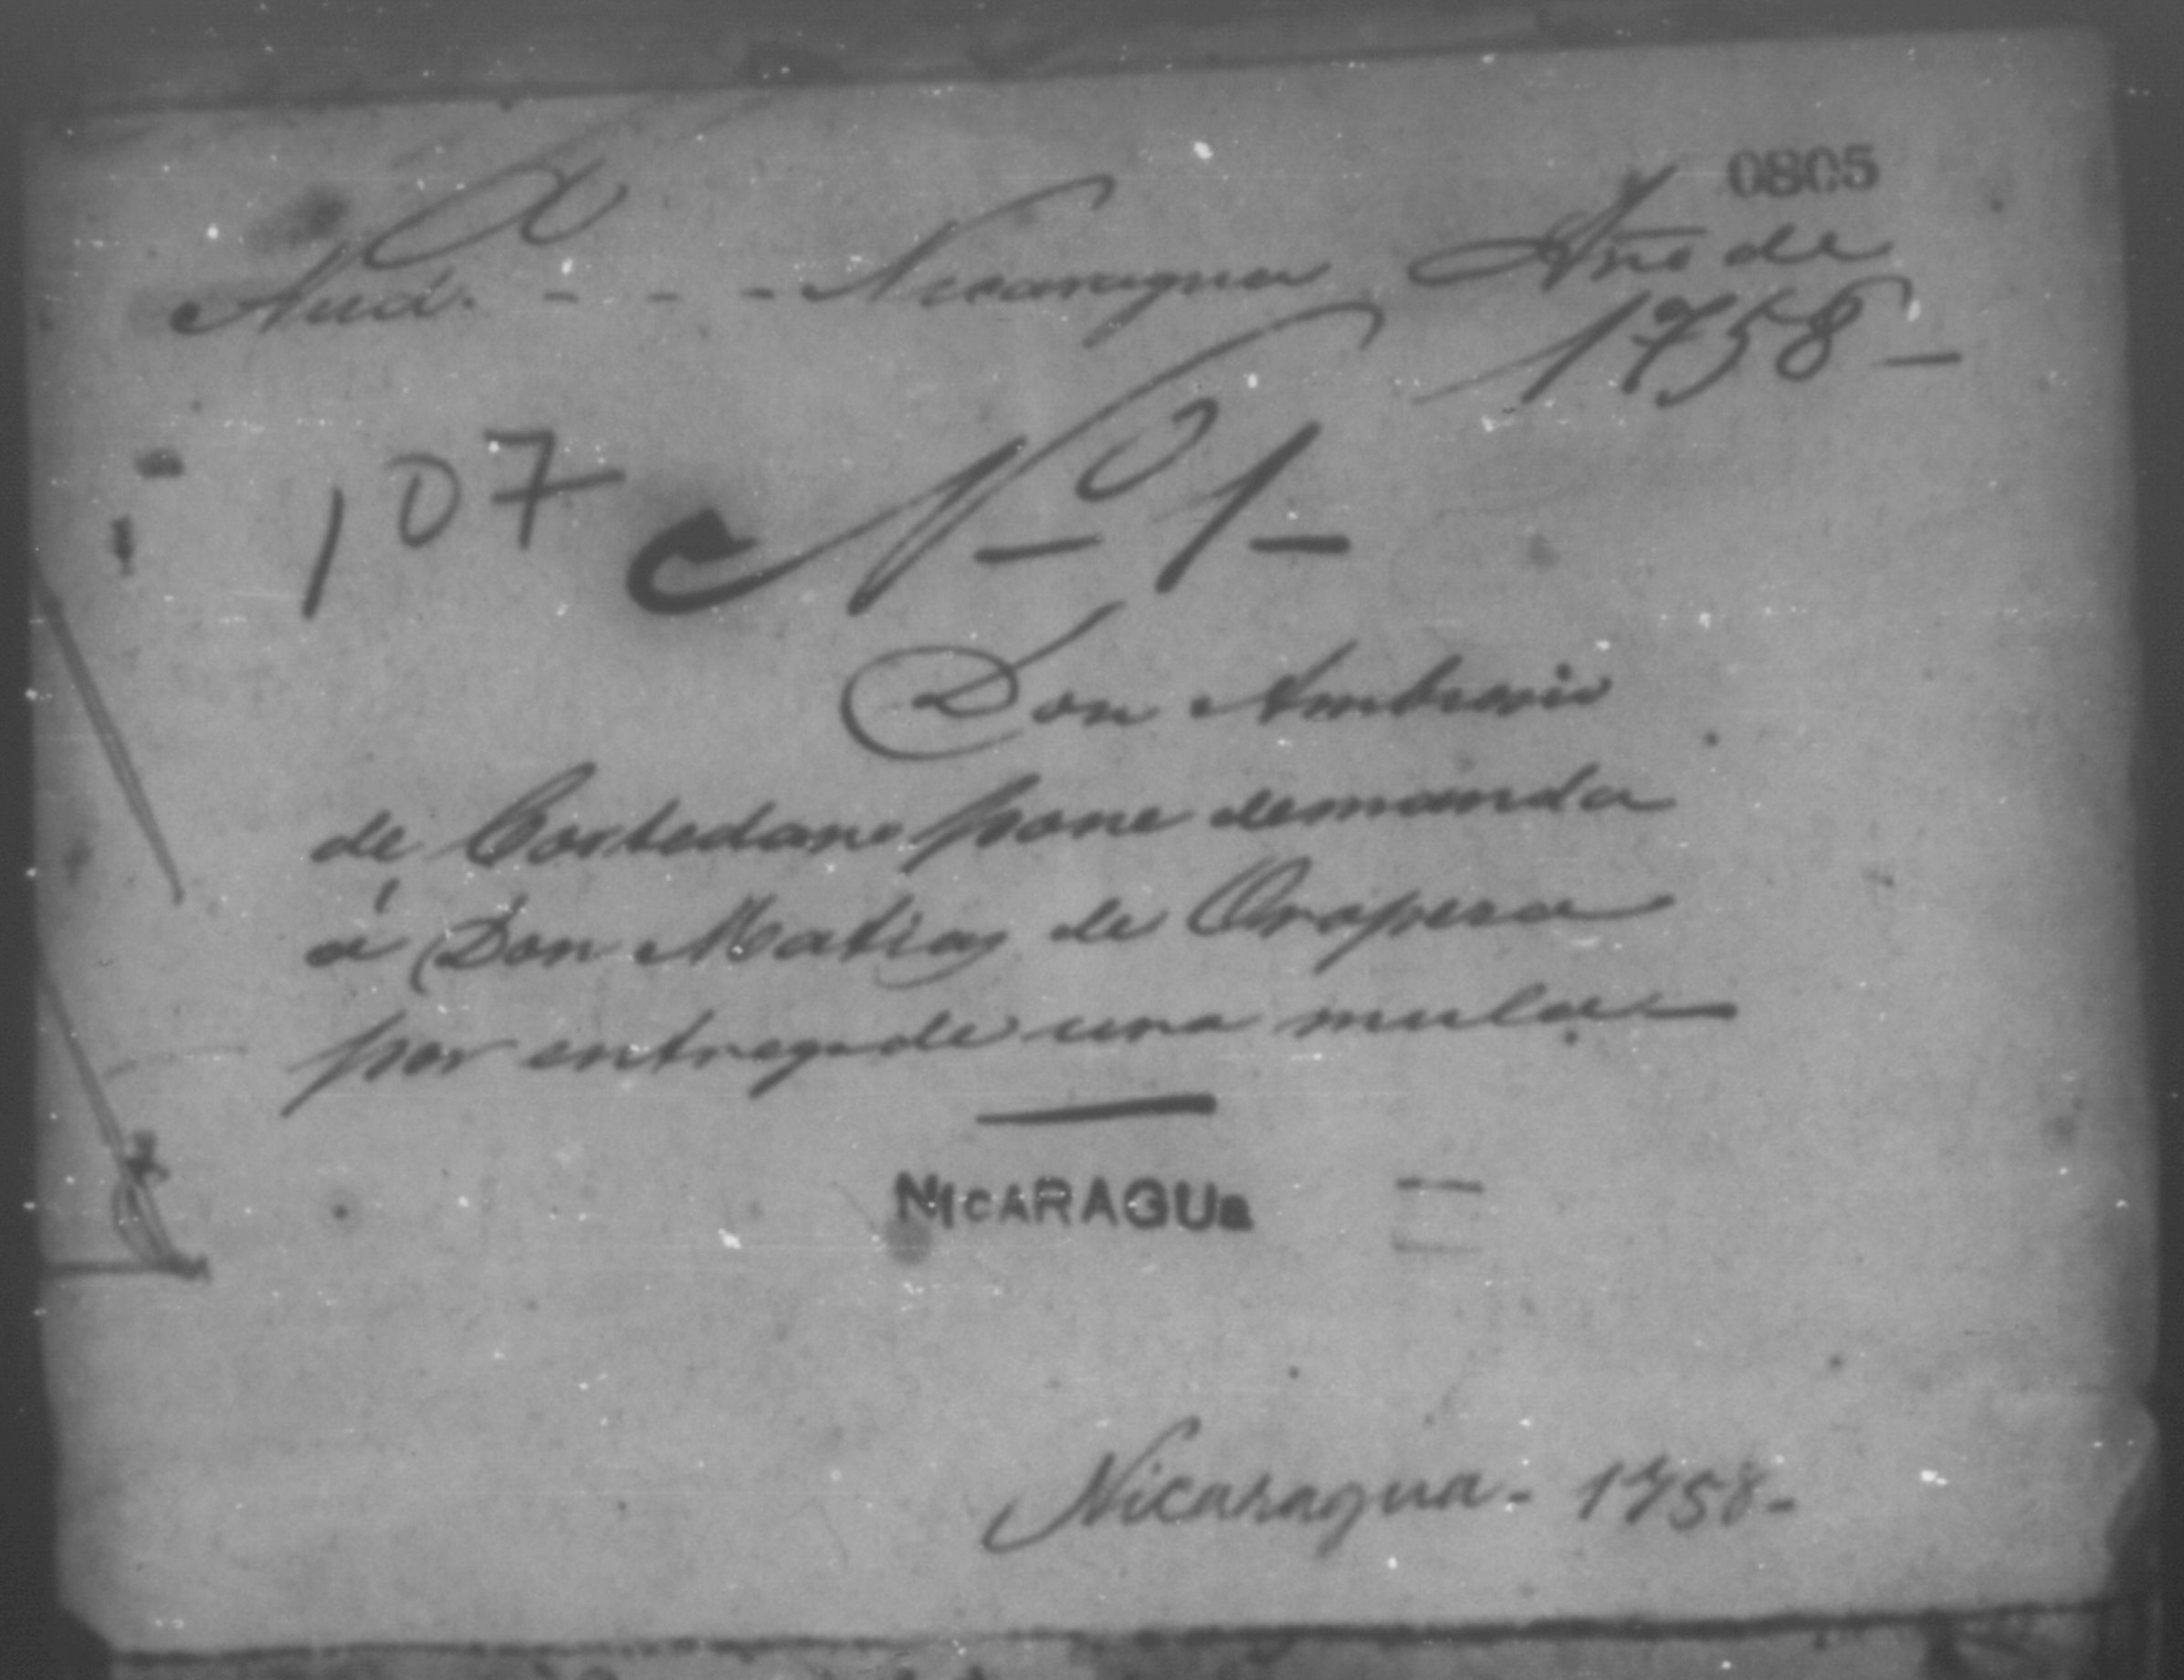 0805
Aud. - - - Nicaragua Año de
1758 -
107 No 1 -
Don Ambrosio
de Costedano pone demanda
á Don Matias de Oropesa
por entrega de una mula -
NICARAGUa
Nicaragua - 1758 -